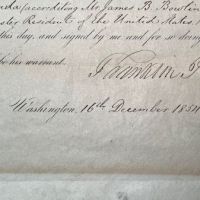 according Mr James B. Bowlin
Resident of the United States
this day, and signed by me and for so doing
be his warrant.
Franklin P
Washington, 16th December 1854